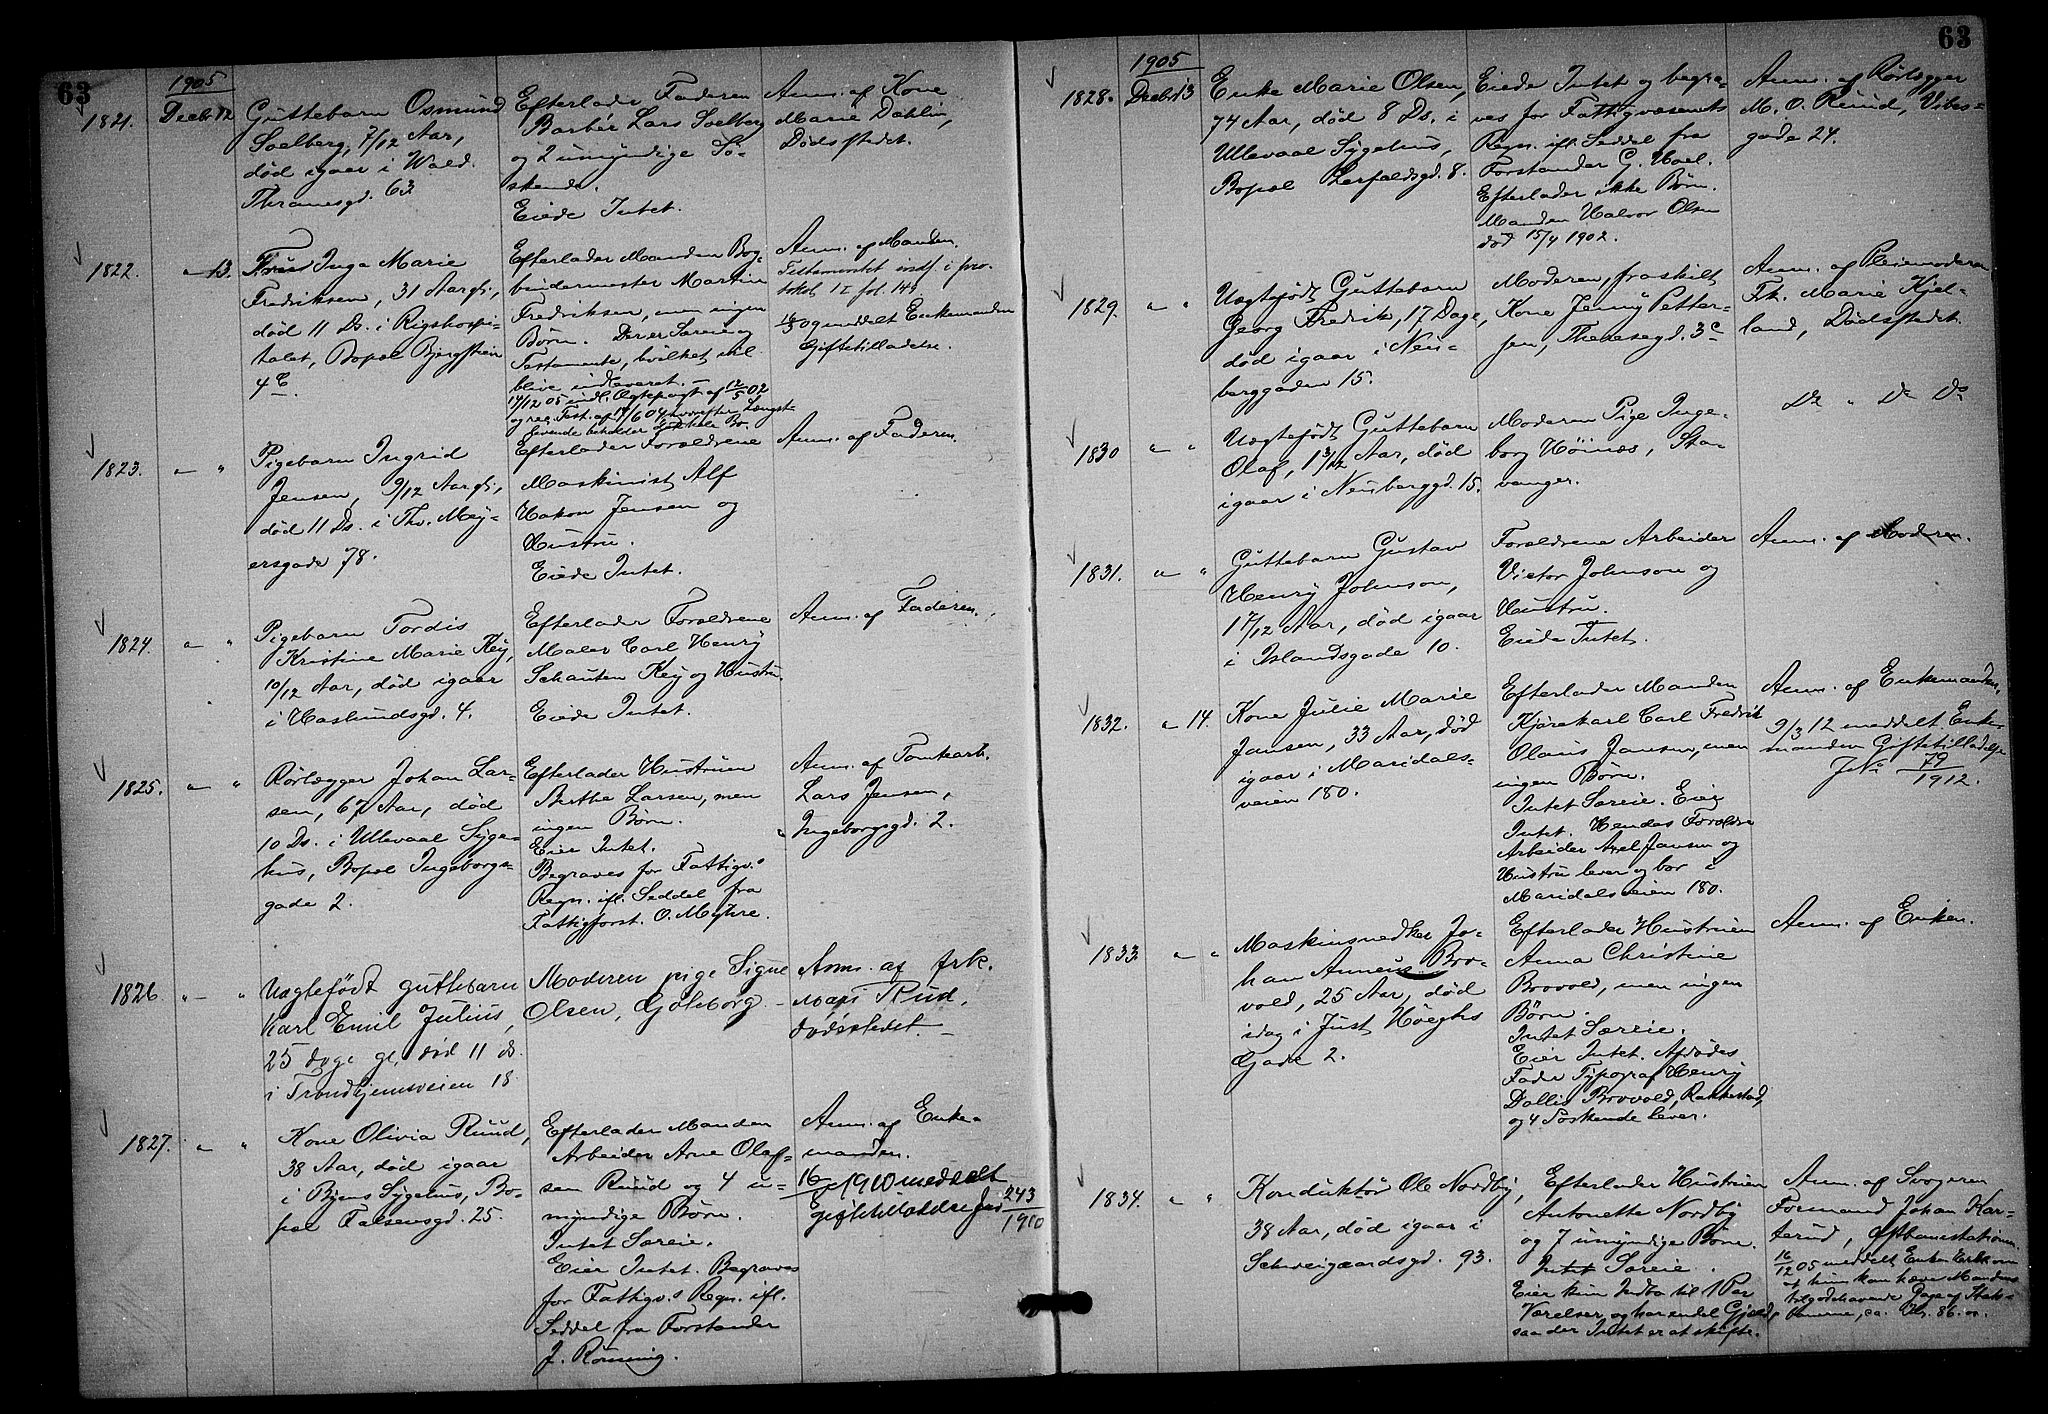 63
1905
1821.
Decbr 12
Guttebarn Osmund
Solberg, 7/12 Aar,
død igaar i Wald.
Thranesgd. 63
Efterlader Faderen
Barbér Lars Solberg
og 2 umyndige Sø-
skende.
Eiede Intet.
Anm. af Kone
Marie Dahlin,
Dødsstedet.
1822.
" 13.
Inga Marie
Fredriksen, 31 Aar gl.,
død 11 Ds. i Rigshospi-
talet, Bopæl Bjergstien
4 C.
Efterlader Manden Bog-
bindermester Martin
Fredriksen, men ingen
Børn. Der er Særeie og
Testamente, hvilket vil
blive indleveret. –
14/12 05 indl. Ægtepagt af 12/5 02
og rec. Test. af 14/6 04 hvorefter Længst-
levende beholder Bo.
Anm. af Manden.
Testamentet indf. i pro-
tokol I fol. 149
16/3 09 meddelt Enkemanden
Giftetilladelse.
1823.
" "
Pigebarn Ingrid
Jensen, 9/12 Aar gl.,
død 11 Ds. i Thv. Mey-
ersgade 78.
Efterlader Forældrene
Maskinist Alf
Hakon Jensen og
Hustru.
Eiede Intet.
Anm. af Faderen.
1824.
" "
Pigebarn Tordis
Kristine Marie Key,
10/12 Aar, død igaar
i Haslundsgd. 4.
Efterlader Forældrene
Maler Carl Henry
Schauten Key og Hustru.
Eiede Intet.
Anm. af Faderen.
1825.
" "
Rørlægger Johan Lar-
sen, 67 Aar, død
10 Ds. i Ullevaal Syge-
hus, Bopæl Ingeborgs-
gade 2.
Efterlader Hustruen
Berthe Larsen, men
ingen Børn.
Eier Intet.
Begraves for Fattigv.s
Regn. ifl. Seddel fra
Fattigforst. O. Myhre.
Anm. af Tomtearb.
Lars Jensen,
Ingeborgsgd. 2.
1826
" "
Uægtefødt guttebarn
Karl Emil Julius,
25 dage gl. død 11 ds.
i Trondhjemsveien 18
Moderen pige Signe
Olsen, Göteborg. –
Anm. af frk.
Maxi Rud,
dødsstedet. –
1827.
" "
Kone Olivia Ruud,
38 Aar, død igaar
i Byens Sygehus, Bo-
pæl Falsensgd. 25.
Efterlader Manden
Arbeider Arne Olaf-
sen Ruud og 4 u-
myndige Børn.
Intet Særeie.
Eier Intet. Begraves
for Fattigv.s Regn. ifl.
Seddel fra Forstander
J. Rønning.
Anm. af Enke-
manden.
1910 meddelt
giftetilladelse Jnd 243/1910
63
1905
1828.
Decbr 13
Enke Marie Olsen,
74 Aar, død 8 Ds. i
Ullevaal Sygehus,
Bopæl Lerfaldsgd. 8.
Eiede Intet og begra-
ves for Fattigvæsenets
Regn. ifl. Seddel fra
Forstander G. Hoel.
Efterlader ikke Børn.
Manden Halvor Olsen
død 15/4 1902.
Anm. af Rørlægger
M. O. Ruud, Vibes-
gade 24.
1829.
" "
Uægtefødt Guttebarn
Georg Fredrik, 17 Dage,
død igaar i Neu-
berggaden 15.
Moderen, fraskilt
Kone Jenny Petter-
sen, Theresesgd. 3 c
Anm. af Pleiemoderen
Frk. Marie Kjel-
land, Dødsstedet.
1830
" "
Uægtefødt Guttebarn
Olaf, 1 3/12 Aar, død
igaar i Neuberggd. 15.
Moderen Pige Inge-
borg Høinæs, Sta-
vanger.
Do " Do Do
1831.
" "
Guttebarn Gustav
Henry Johnson,
1 7/12 Aar, død igaar
i Islandsgade 10.
Forældrene Arbeider
Victor Johnson og
Hustru.
Eiede Intet.
Anm. af Moderen.
1832.
" 14.
Kone Julie Marie
Jansen, 33 Aar, død
igaar i Maridals-
veien 180.
Efterlader Manden
Kjørekarl Carl Fredrik
Olaus Jansen, men
ingen Børn.
Intet Særeie. Eier
Intet. Hendes Forældre
Arbeider Axel Jansen og
Hustru lever og bor i
Maridalsveien 180.
Anm. af Enkemanden.
9/3 12 meddelt Enke-
manden Giftetilladelse
J.No 79/1912.
1833
" "
Maskinsnedker Jo-
han Anneus Bro-
vold, 25 Aar, død
idag i Just Høeghs
Gade 2.
Efterlader Hustruen
Anna Christine
Brovold, men ingen
Børn.
Intet Særeie.
Eier Intet. Afdødes
Fader Typograf Henry
Dallis Brovold, Rakkestad,
og 4 Søskende lever.
Anm. af Enken.
1834.
" "
Konduktør Ole Nordby,
38 Aar, død igaar i
Schweigaardsgd. 93.
Efterlader Hustruen
Antonette Nordby
og 7 umyndige Børn.
Intet Særeie.
Eier kun Indbo til 1 Par
Værelser og har endel Gjæld,
saa der Intet er at skifte.
Anm. af Svogeren
Formand Johan Kar-
terud, Østbanestationen.
16/12 05 meddelt Enken Erkl. om
at hun kan hæve Mandens
tilgodehavende Gage af Stats-
banerne, ca. Kr. 86.00.